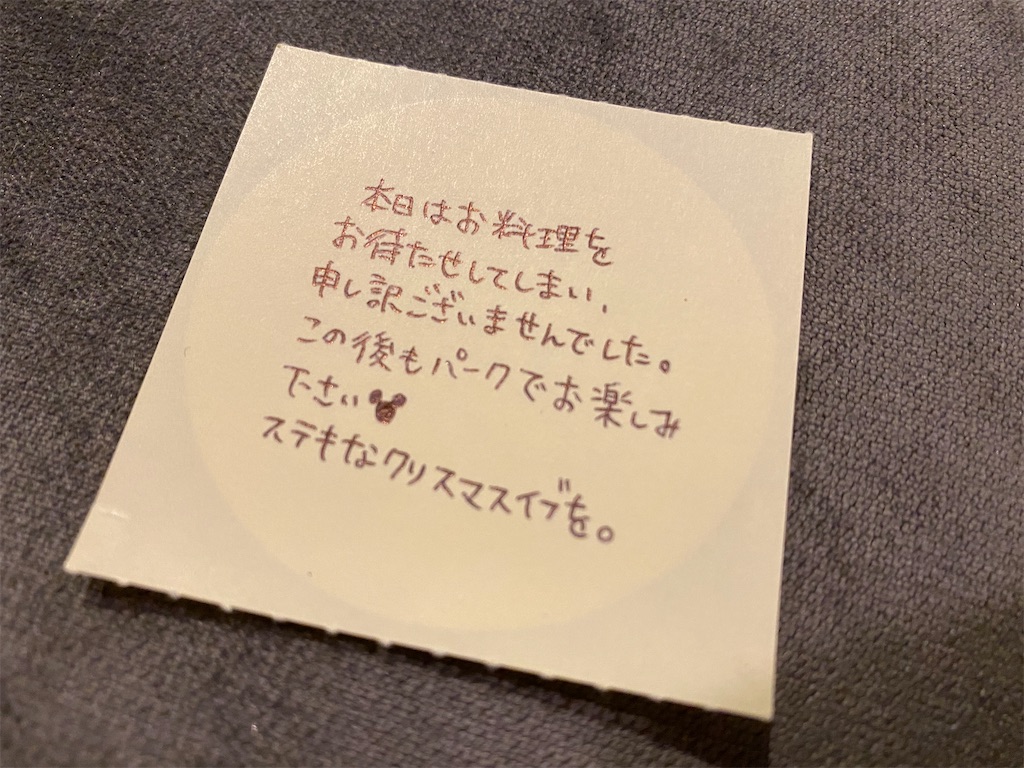 本日はお料理を
お待たせしてしまい、
申し訳ございませんでした。
この後もパークでお楽しみ
下さい
ステキなクリスマスイブを。